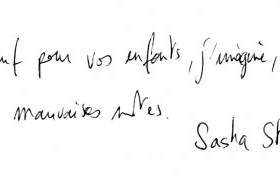 pour vos enfants, j'imagine,
mauvaises notes.
Sasha